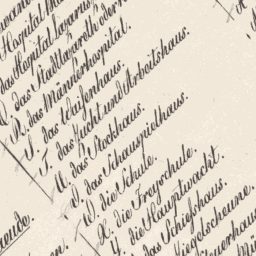 Hospital
das Hospital Lazarus
Q. das Stadtlazareth oder
R. das Männerhospital.
S. das Waisenhaus.
T. das Zucht und Arbeitshaus.
U. das Stockhaus.
V. das Schauspielhaus.
W. die Schule.
X. die Freyschule.
Y. die Hauptwacht.
das Schießhaus.
Ziegelscheune.